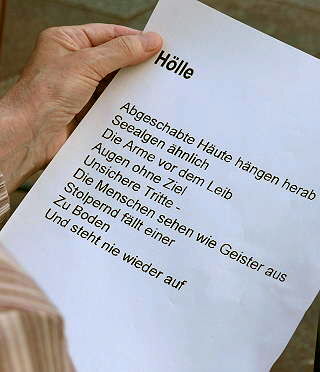 Hölle
Abgeschabte Häute hängen herab
Seealgen ähnlich
Die Arme vor dem Leib
Augen ohne Ziel
Unsichere Tritte -
Die Menschen sehen wie Geister aus
Stolpernd fällt einer
Zu Boden
Und steht nie wieder auf